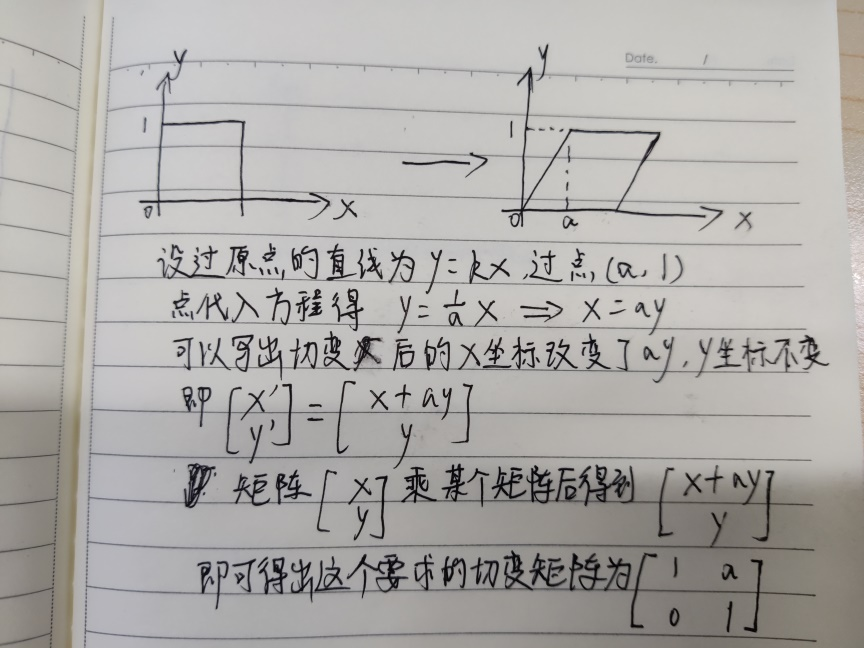 Date. /
y y
1 1
0 x 0 a x
设过原点的直线为 y=kx,过点(a,1)
点代入方程得 y=1/a x ⇒ x=ay
可以写出切变后的x坐标改变了ay,y坐标不变
即 [x' y'] = [x+ay y]
矩阵 [x y] 乘某个矩阵后得到 [x+ay y]
即可得出这个要求的切变矩阵为 [1 a 0 1]